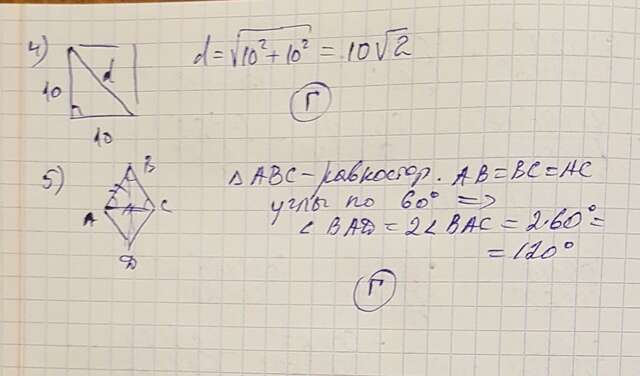 4)
d = √(10² + 10²) = 10√2
d
10
10
Г
5)
B
A
C
D
△ABC – равностор. AB = BC = AC
углы по 60° =>
∠BAD = 2∠BAC = 2·60° =
= 120°
Г